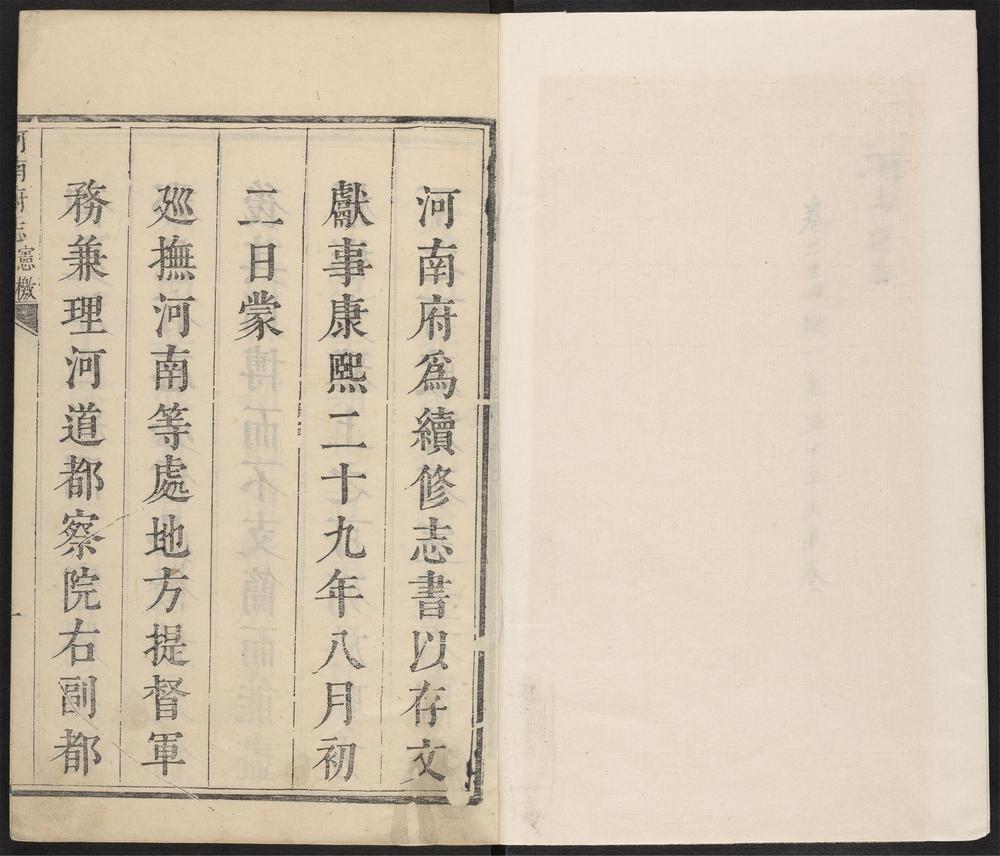 河南府爲續修志書以存文
獻事康熙二十九年八月初
二日蒙
廵撫河南等處地方提督軍
務兼理河道都察院右副都
河南府志憲檄
一